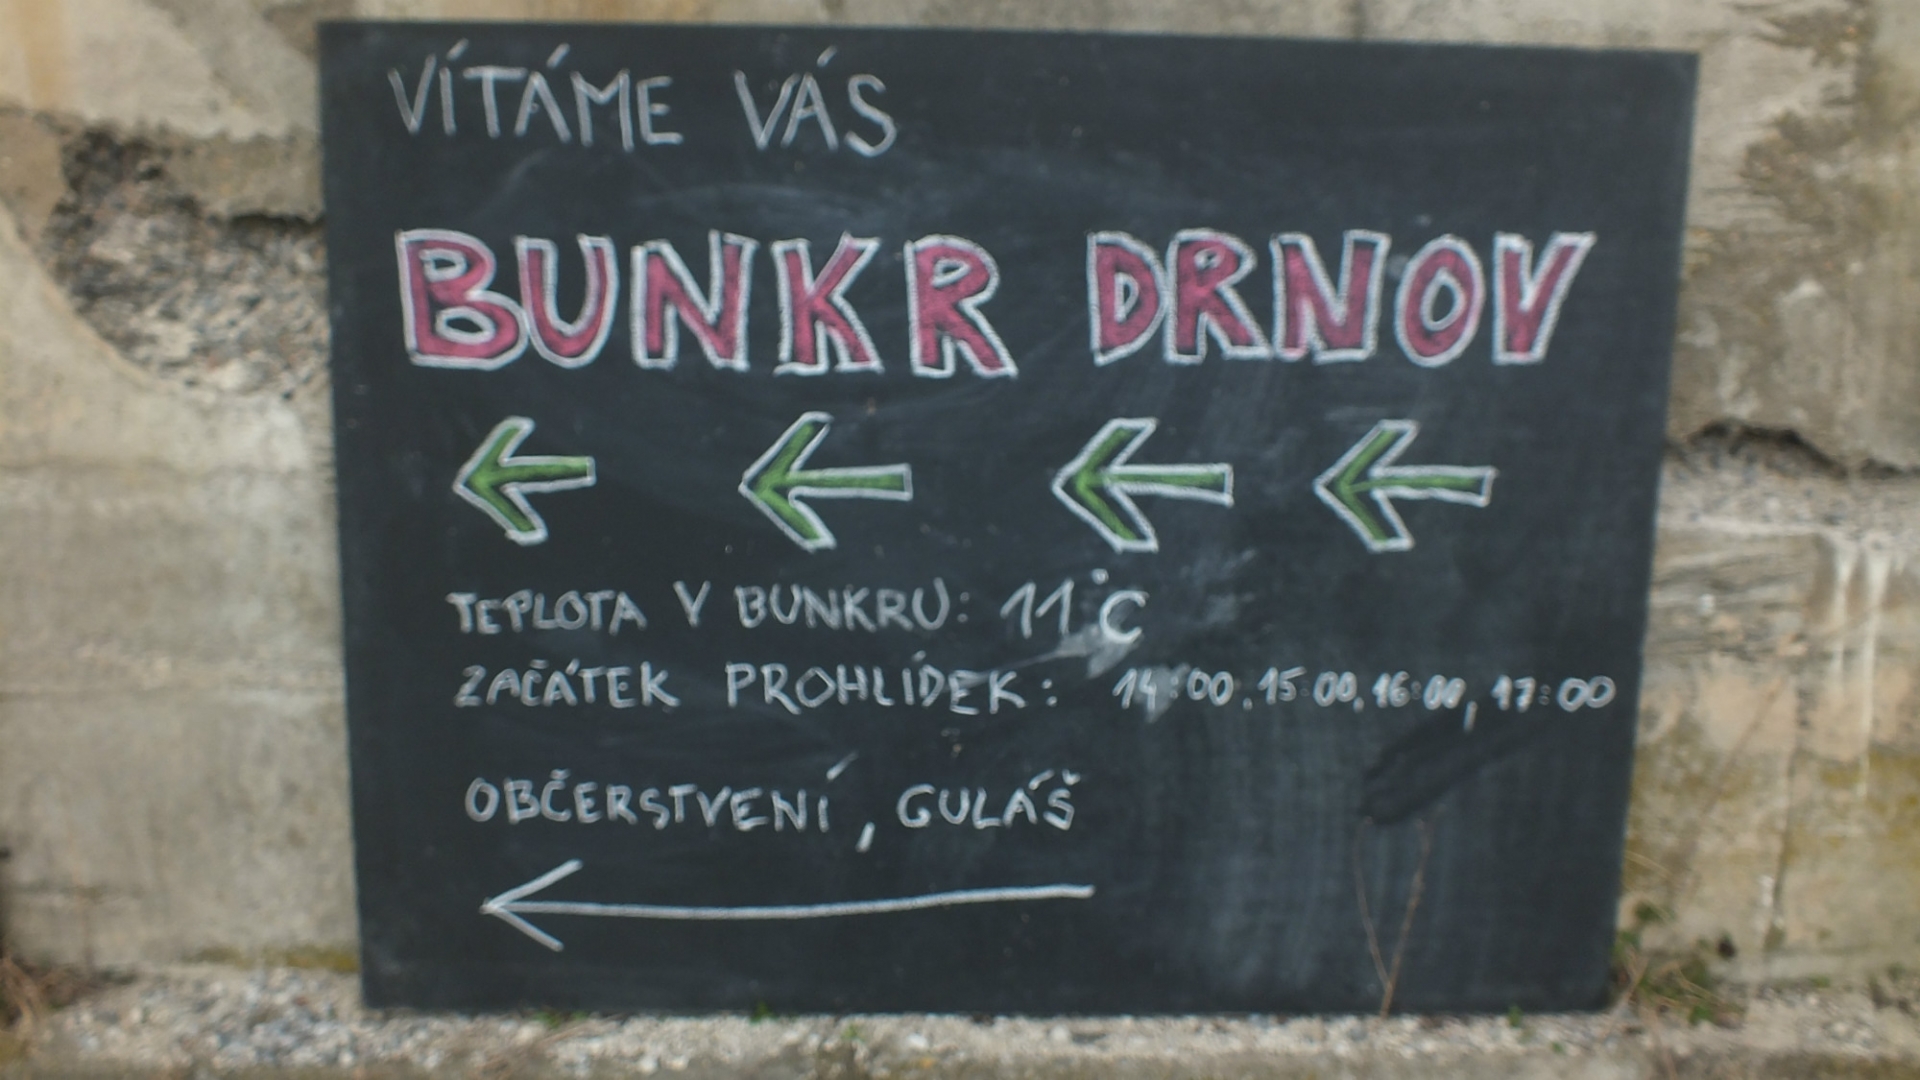 VÍTÁME VÁS
BUNKR DRNOV
TEPLOTA V BUNKRU: 11°C
ZAČÁTEK PROHLÍDEK: 14:00, 15:00, 16:00, 17:00
OBČERSTVENÍ, GULÁŠ